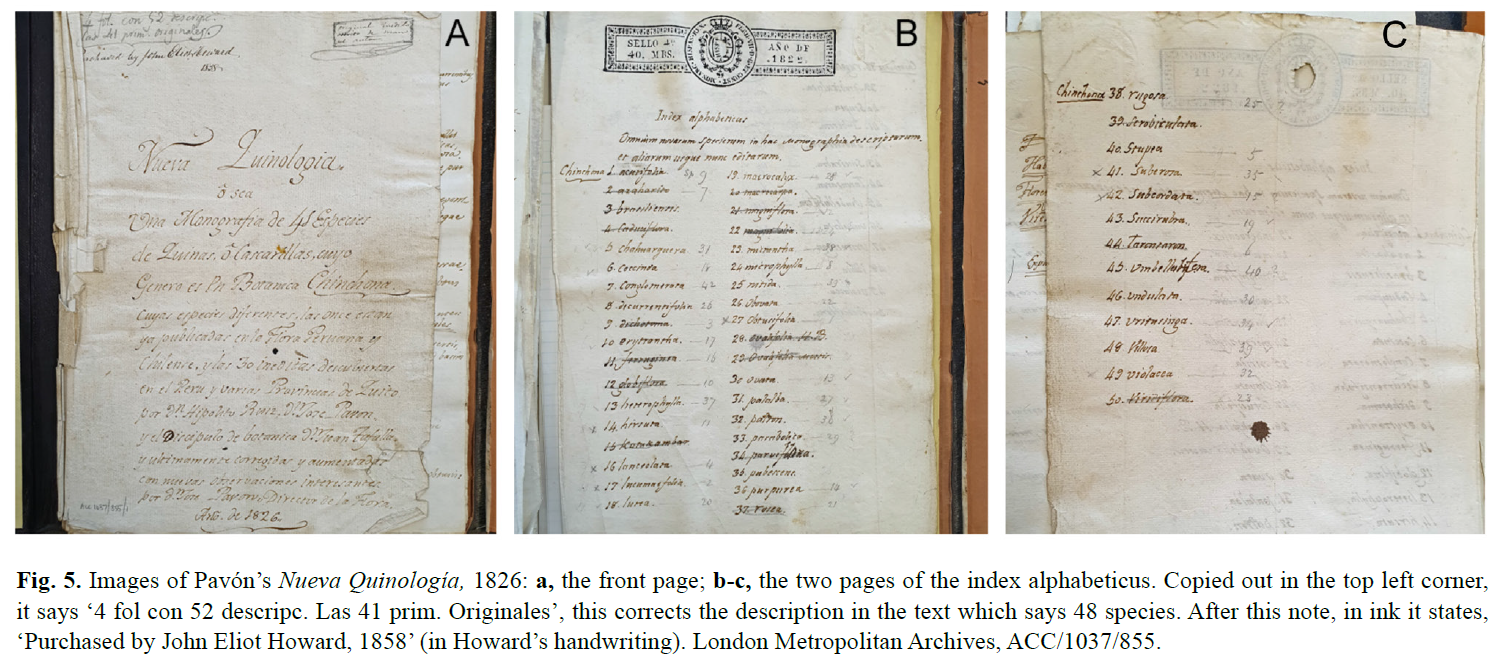 A
4 fol con 52 descripc.
las 41 prim. originales.
Purchased by John Eliot Howard
1858
Nueva Quinologia.
ó sea
Una Monografia de 48 Especies
de Quinas, ó Cascarillas, cuyo
Genero es en Botanica Chinchona.
cuyas especies diferentes, las once estan
ya publicadas en la Flora Peruana y
Chilense, y las 30 ineditas descubiertas
en el Peru, y varias Provincias de Quito
por Dn. Hipolito Ruiz, Dn. Jose Pavon,
y el Discipulo de botanica Dn. Juan Tafalla,
y ultimamente corregidas y aumentadas
con nuevas observaciones interesantes
por Dn. Jose Pavon, Director de la Flora.
Año de 1826.
B
SELLO 4º
40. MRS.
AÑO DE
.1822.
Index alphabeticus
Omnium novarum specierum in hac monographia descriptarum,
et aliarum usque nunc editarum.
Chinchona 1. acutifolia 9
2 7
3 brasiliensis
4
5 Chahuarguera 31
6
7 Conglomerata 42
8 decurrentifolia 26
9 dichotoma 3
10 erytrantha 17
11 ferruginea 16
12 globiflora 10
13 heterophylla 37
14 hirsuta
15
16 lanceolata 4
17 lucumaefolia
18. lutea 20
19. macrocalyx 28
20 macrocarpa
21 magniflora
22
23. micrantha
24 microphylla 8
25 nitida
26 Obovata 22
27 Obtusifolia
28. ovalifolia
29. Ovalifolia
30 Ovata 13
31. palalba 27
32. palton
33.
34.
35. pubescens
36 purpurea 14
37. rosea 21
C
Chinchona 38. rugosa 25 ?
39. Scrobiculata
40. Stupea 5
41. Suberosa 35
42. Subcordata 15
43. Succirubra 19
44.
45. Umbellulifera 40 ?
46. undulata 30
47. Uritusinga 34
48 Villosa 39
49 violacea 32
50. 23
Fig. 5. Images of Pavón’s Nueva Quinología, 1826: a, the front page; b-c, the two pages of the index alphabeticus. Copied out in the top left corner,
it says ‘4 fol con 52 descripc. Las 41 prim. Originales’, this corrects the description in the text which says 48 species. After this note, in ink it states,
‘Purchased by John Eliot Howard, 1858’ (in Howard’s handwriting). London Metropolitan Archives, ACC/1037/855.